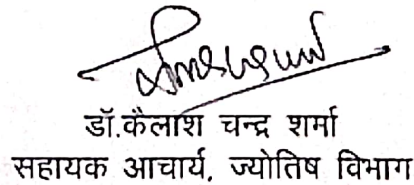 डॉ.कैलाश चन्द्र शर्मा
सहायक आचार्य, ज्योतिष विभाग